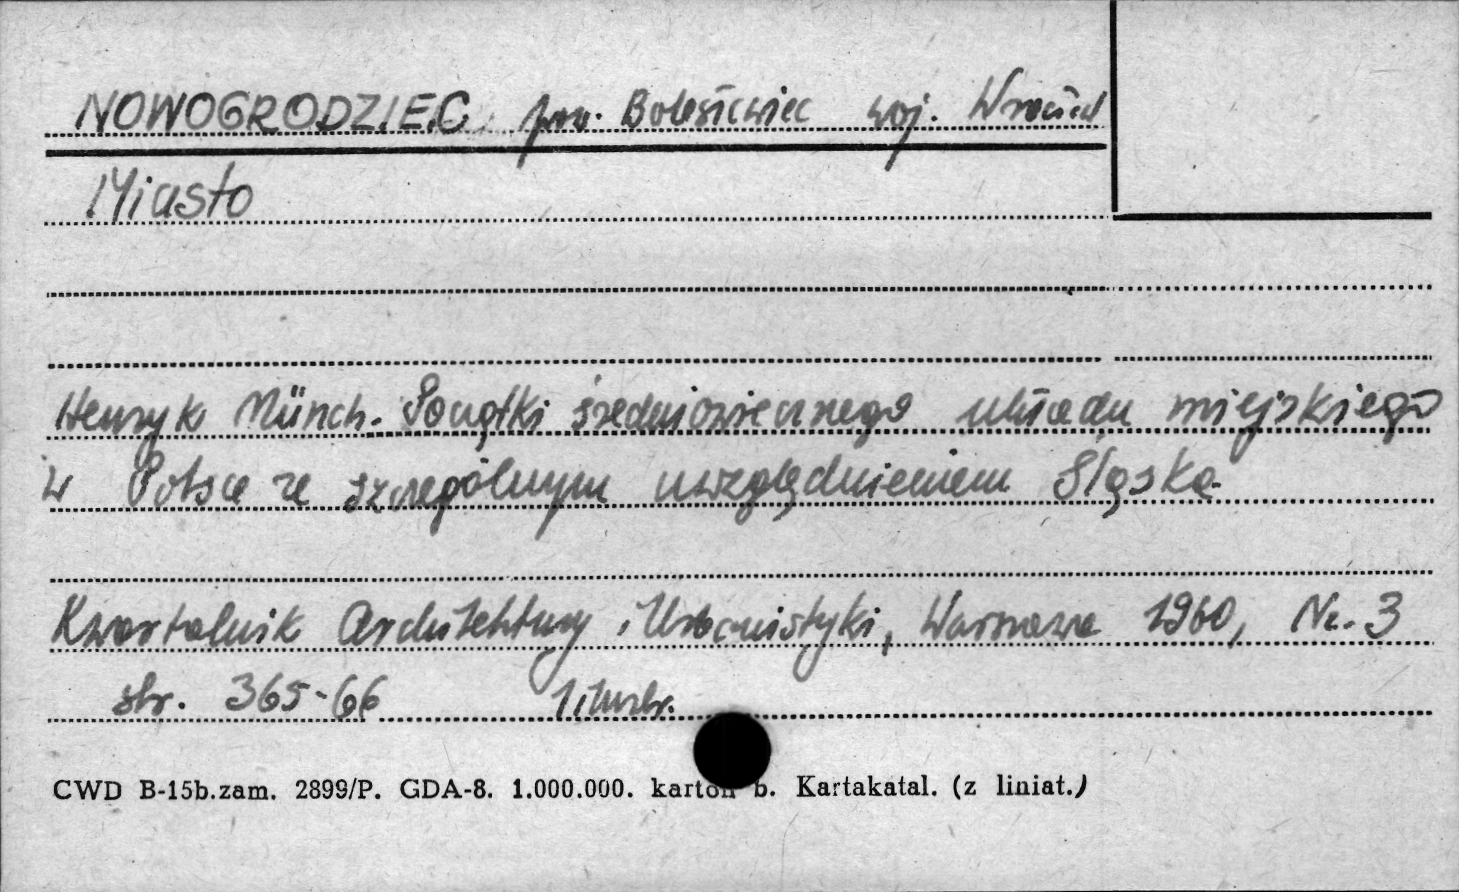 NOWOGRODZIEC pow. Bolesławiec woj. Wrocław
Miasto
Henryk Münch. Początki średniowiecznego układu miejskiego
w Polsce ze szczególnym uwzględnieniem Śląska.
Kwartalnik Architektury i Urbanistyki, Warszawa 1960, Nr. 3
str. 365-66 1 ilustr.
CWD B-15b.zam. 2899/P. GDA-8. 1.000.000. karton b. Kartakatal. (z liniat.)